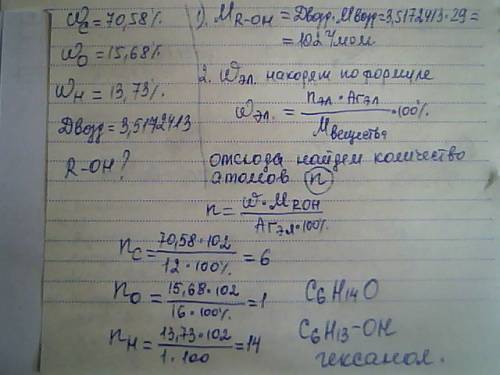 ω_C = 70,58%
ω_O = 15,68%
ω_H = 13,73%
Двозд = 3,5172413
R-OH?
1). M_{R-OH} = Двозд · Mвозд = 3,5172413 · 29 =
= 102 г/моль
2. ω эл. находим по формуле
ω эл. = \frac{n эл. · Ar эл}{M вещества} · 100%
отсюда найдем количество
атомов n
n = \frac{ω · M_{ROH}}{Ar эл · 100%}
n_C = \frac{70,58 · 102}{12 · 100%} = 6
n_O = \frac{15,68 · 102}{16 · 100%} = 1
n_H = \frac{13,73 · 102}{1 · 100} = 14
C6H14O
C6H13-OH
гексанол.